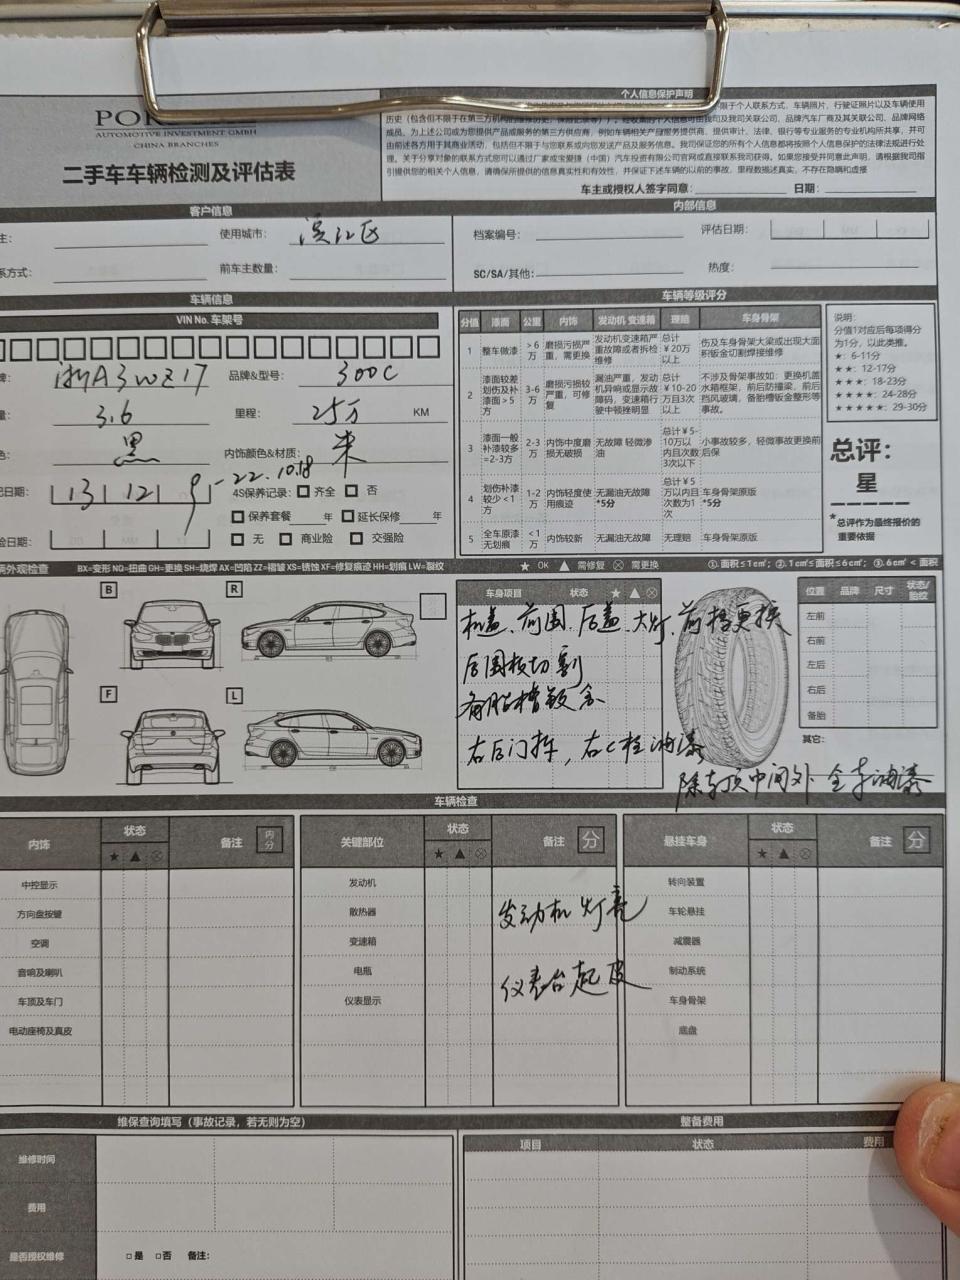 POR
AUTOMOTIVE INVESTMENT GMBH
CHINA BRANCHES
二手车车辆检测及评估表
个人信息保护声明
不限于个人联系方式，车辆照片，行驶证照片以及车辆使用
历史（包含但不限于在第三方机构
我司及我司关联公司、品牌汽车厂商及其关联公司、品牌网络
成员。为上述公司或为您提供产品或服务的第三方供应商，例如车辆相关产品服务提供商、提供审计、法律、银行等专业服务的专业机构所共享，并可
由前述各方用于其商业活动，包括但不限于与您联系或向您发送产品及服务信息。我司保证您的所有个人信息都将按照个人信息保护的法律法规进行处
理。关于分享对象的联系方式您可以通过厂家或宝爱捷（中国）汽车投资有限公司官网或直接联系我司获得。如果您接受并同意此声明，请根据我司指
引提供您的相关个人信息，请确保所提供的信息真实性和有效性，并保证下述车辆的以前的事故，里程数描述真实，不存在隐瞒和虚接
车主或授权人签字同意： 日期：
客户信息
主： 使用城市： 滨江区
系方式： 前车主数量：
内部信息
档案编号： 评估日期：
SC/SA/其他： 热度：
车辆信息
VIN No. 车架号
牌： 浙A3WZ17 品牌&型号： 300C
量： 3.6 里程： 25万 KM
色： 黑 内饰颜色&材质： 米
记日期： 13 12 9 -22.10.18
4S保养记录： 齐全 否
保养套餐 年 延长保修 年
险日期： 无 商业险 交强险
车辆等级评分
分值 漆面 公里 内饰 发动机 变速箱 理赔 车身骨架
1 整车做漆 > 6万 磨损污损严重，需更换 发动机变速箱严重故障或者拆检维修 总计￥20万以上 伤及车身骨架大梁或出现大面积钣金切割焊接维修
2 漆面较差 划伤及补漆面＞5方 3-6万 磨损污损较严重，可修复 漏油严重，发动机异响或显示故障码，变速箱行驶中顿挫明显 总计￥10-20万且3次以上 不涉及骨架事故如：更换机盖水箱框架，前后防撞梁，前后挡风玻璃，备胎槽钣金整形等事故。
3 漆面一般 补漆较多=2-3方 2-3万 内饰中度磨损无破损 无故障 轻微渗油 总计￥5-10万以内且次数3次以下 小事故较多，轻微事故更换前后保
4 划伤补漆较少＜1方 1-2万 内饰轻度使用痕迹 无漏油无故障*5分 总计￥5万以内且次数为1次 车身骨架原版*5分
5 全车原漆无划痕 ＜1万 内饰较新 无漏油无故障 无理赔 车身骨架原版
说明：
分值1对应后每项得分为1分，以此类推。
★：6-11分
★★：12-17分
★★★：18-23分
★★★★：24-28分
★★★★★：29-30分
总评：
星
*总评作为最终报价的重要依据
辆外观检查 BX=变形 NQ=扭曲 GH=更换 SH=烧焊 AX=凹陷 ZZ=褶皱 XS=锈蚀 XF=修复痕迹 HH=划痕 LW=裂纹
★ OK ▲ 需修复 ⊗ 需更换 ①.面积≤1㎝²；②.1㎝²≤面积≤6㎝²；③.6㎝²＜面积
B R
F L
车身项目 状态 ★ ▲ ⊗
机盖、前围、后盖、大灯、前杠更换
后围板切割
备胎槽钣金
右后门拆，右C柱油漆
除车顶中间外 全车油漆
位置 品牌 尺寸 状态/胎纹
左前
右前
左后
右后
备胎
其它：
车辆检查
内饰 状态 ★ ▲ ⊗ 备注 内分
中控显示
方向盘按键
空调
音响及喇叭
车顶及车门
电动座椅及真皮
关键部位 状态 ★ ▲ ⊗ 备注 分
发动机
散热器
变速箱
电瓶
仪表显示
发动机灯亮
仪表台起皮
悬挂车身 状态 ★ ▲ ⊗ 备注 分
转向装置
车轮悬挂
减震器
制动系统
车身骨架
底盘
维保查询填写（事故记录，若无则为空）
维修时间
费用
是否授权维修 □是 □否 备注：
整备费用
项目 状态 费用